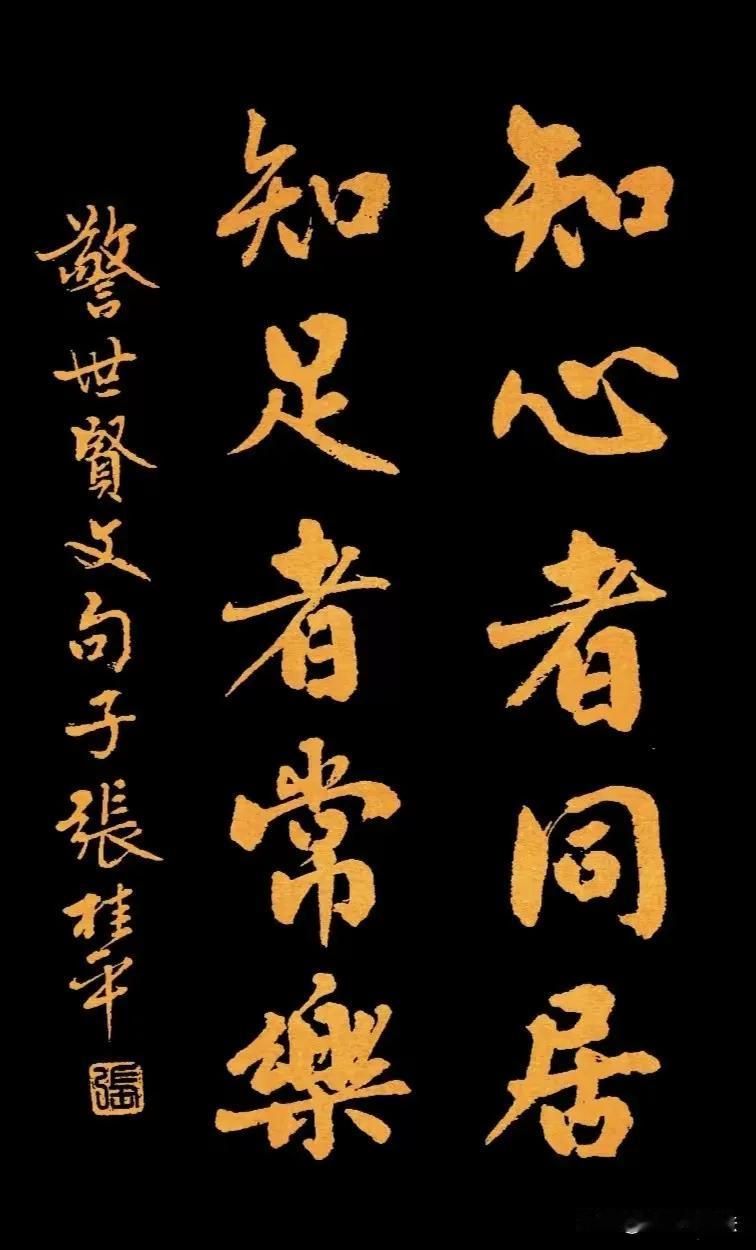 知心者同居
知足者常樂
警世賢文句子張桂平
張